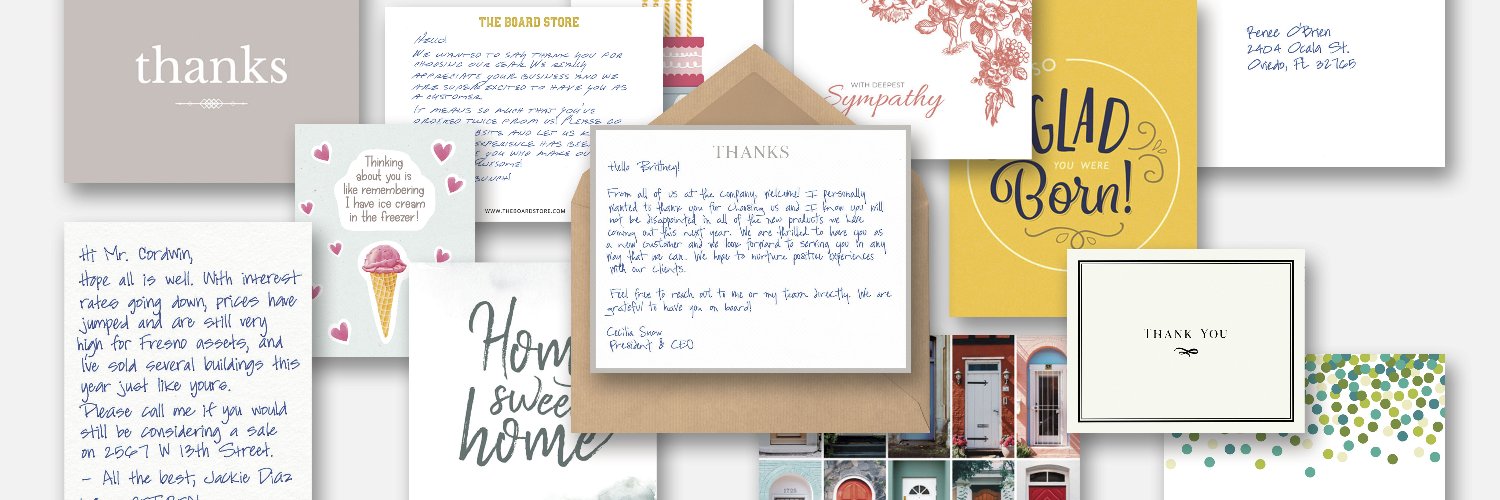 thanks
THE BOARD STORE
Hello,
WE WANTED TO SAY THANK YOU FOR
CHOOSING OUR GEAR. WE REALLY
APPRECIATE YOUR BUSINESS AND WE
ARE SUPER EXCITED TO HAVE YOU AS
A CUSTOMER.
IT MEANS SO MUCH THAT YOU'VE
ORDERED TWICE FROM US! PLEASE GO
AND LET US
HAS BEEN
YOU WILL MAKE OUR
WWW.THEBOARDSTORE.COM
Thinking
about you is
like remembering
I have ice cream
in the freezer!
Hi Mr. Cordwin,
Hope all is well. With interest
rates going down, prices have
jumped and are still very
high for Fresno assets, and
I've sold several buildings this
year just like yours.
Please call me if you would
still be considering a sale
on 2567 W 13th Street.
- All the best, Jackie Diaz
Home
sweet
home
THANKS
Hello Brittney!
From all of us at the company, welcome! I personally
wanted to thank you for choosing us and I know you will
not be disappointed in all of the new products we have
coming out this next year. We are thrilled to have you as
a new customer and we look forward to serving you in any
way that we can. We hope to nurture positive experiences
with our clients.
Feel free to reach out to me or my team directly. We are
grateful to have you on board!
Cecilia Snow
President & CEO
WITH DEEPEST
Sympathy
SO
GLAD
YOU WERE
Born!
Renee O'Brien
2404 Ocala St.
Oviedo, FL 32765
THANK YOU